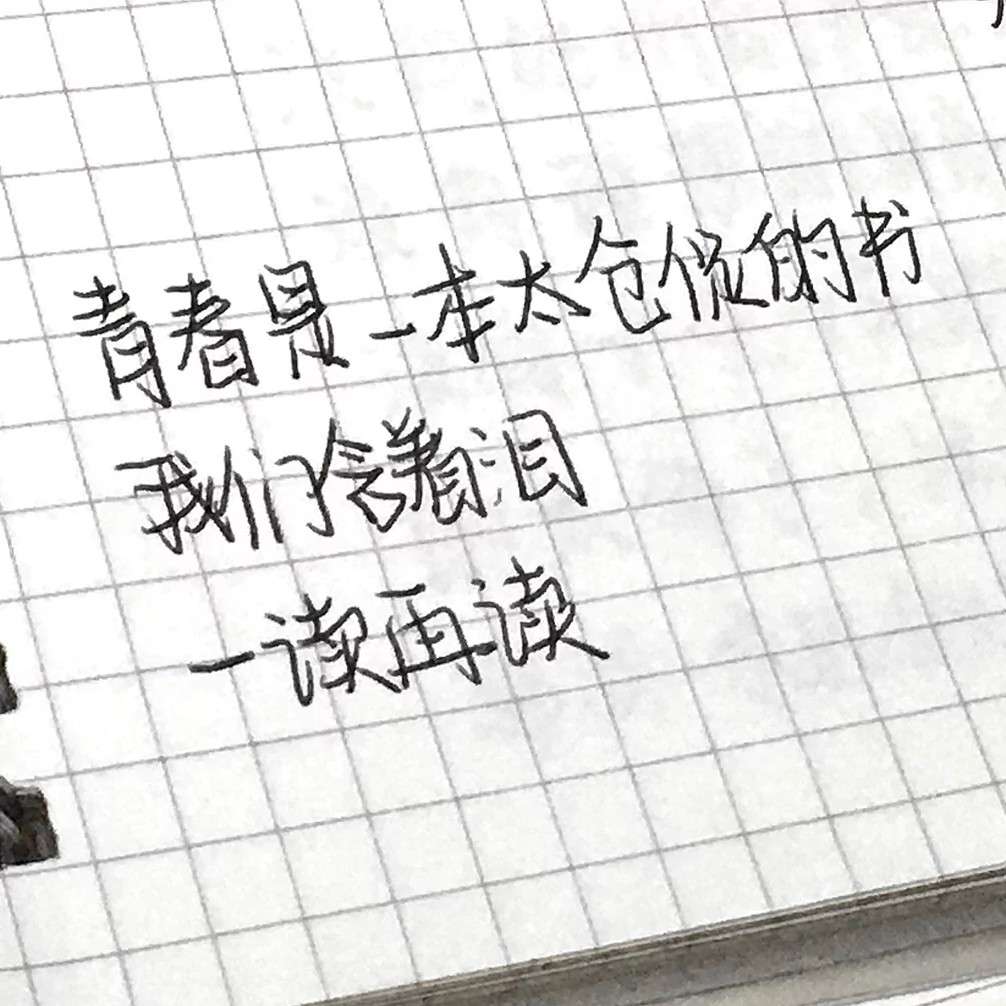 青春是一本太仓促的书
我们含着泪
一读再读